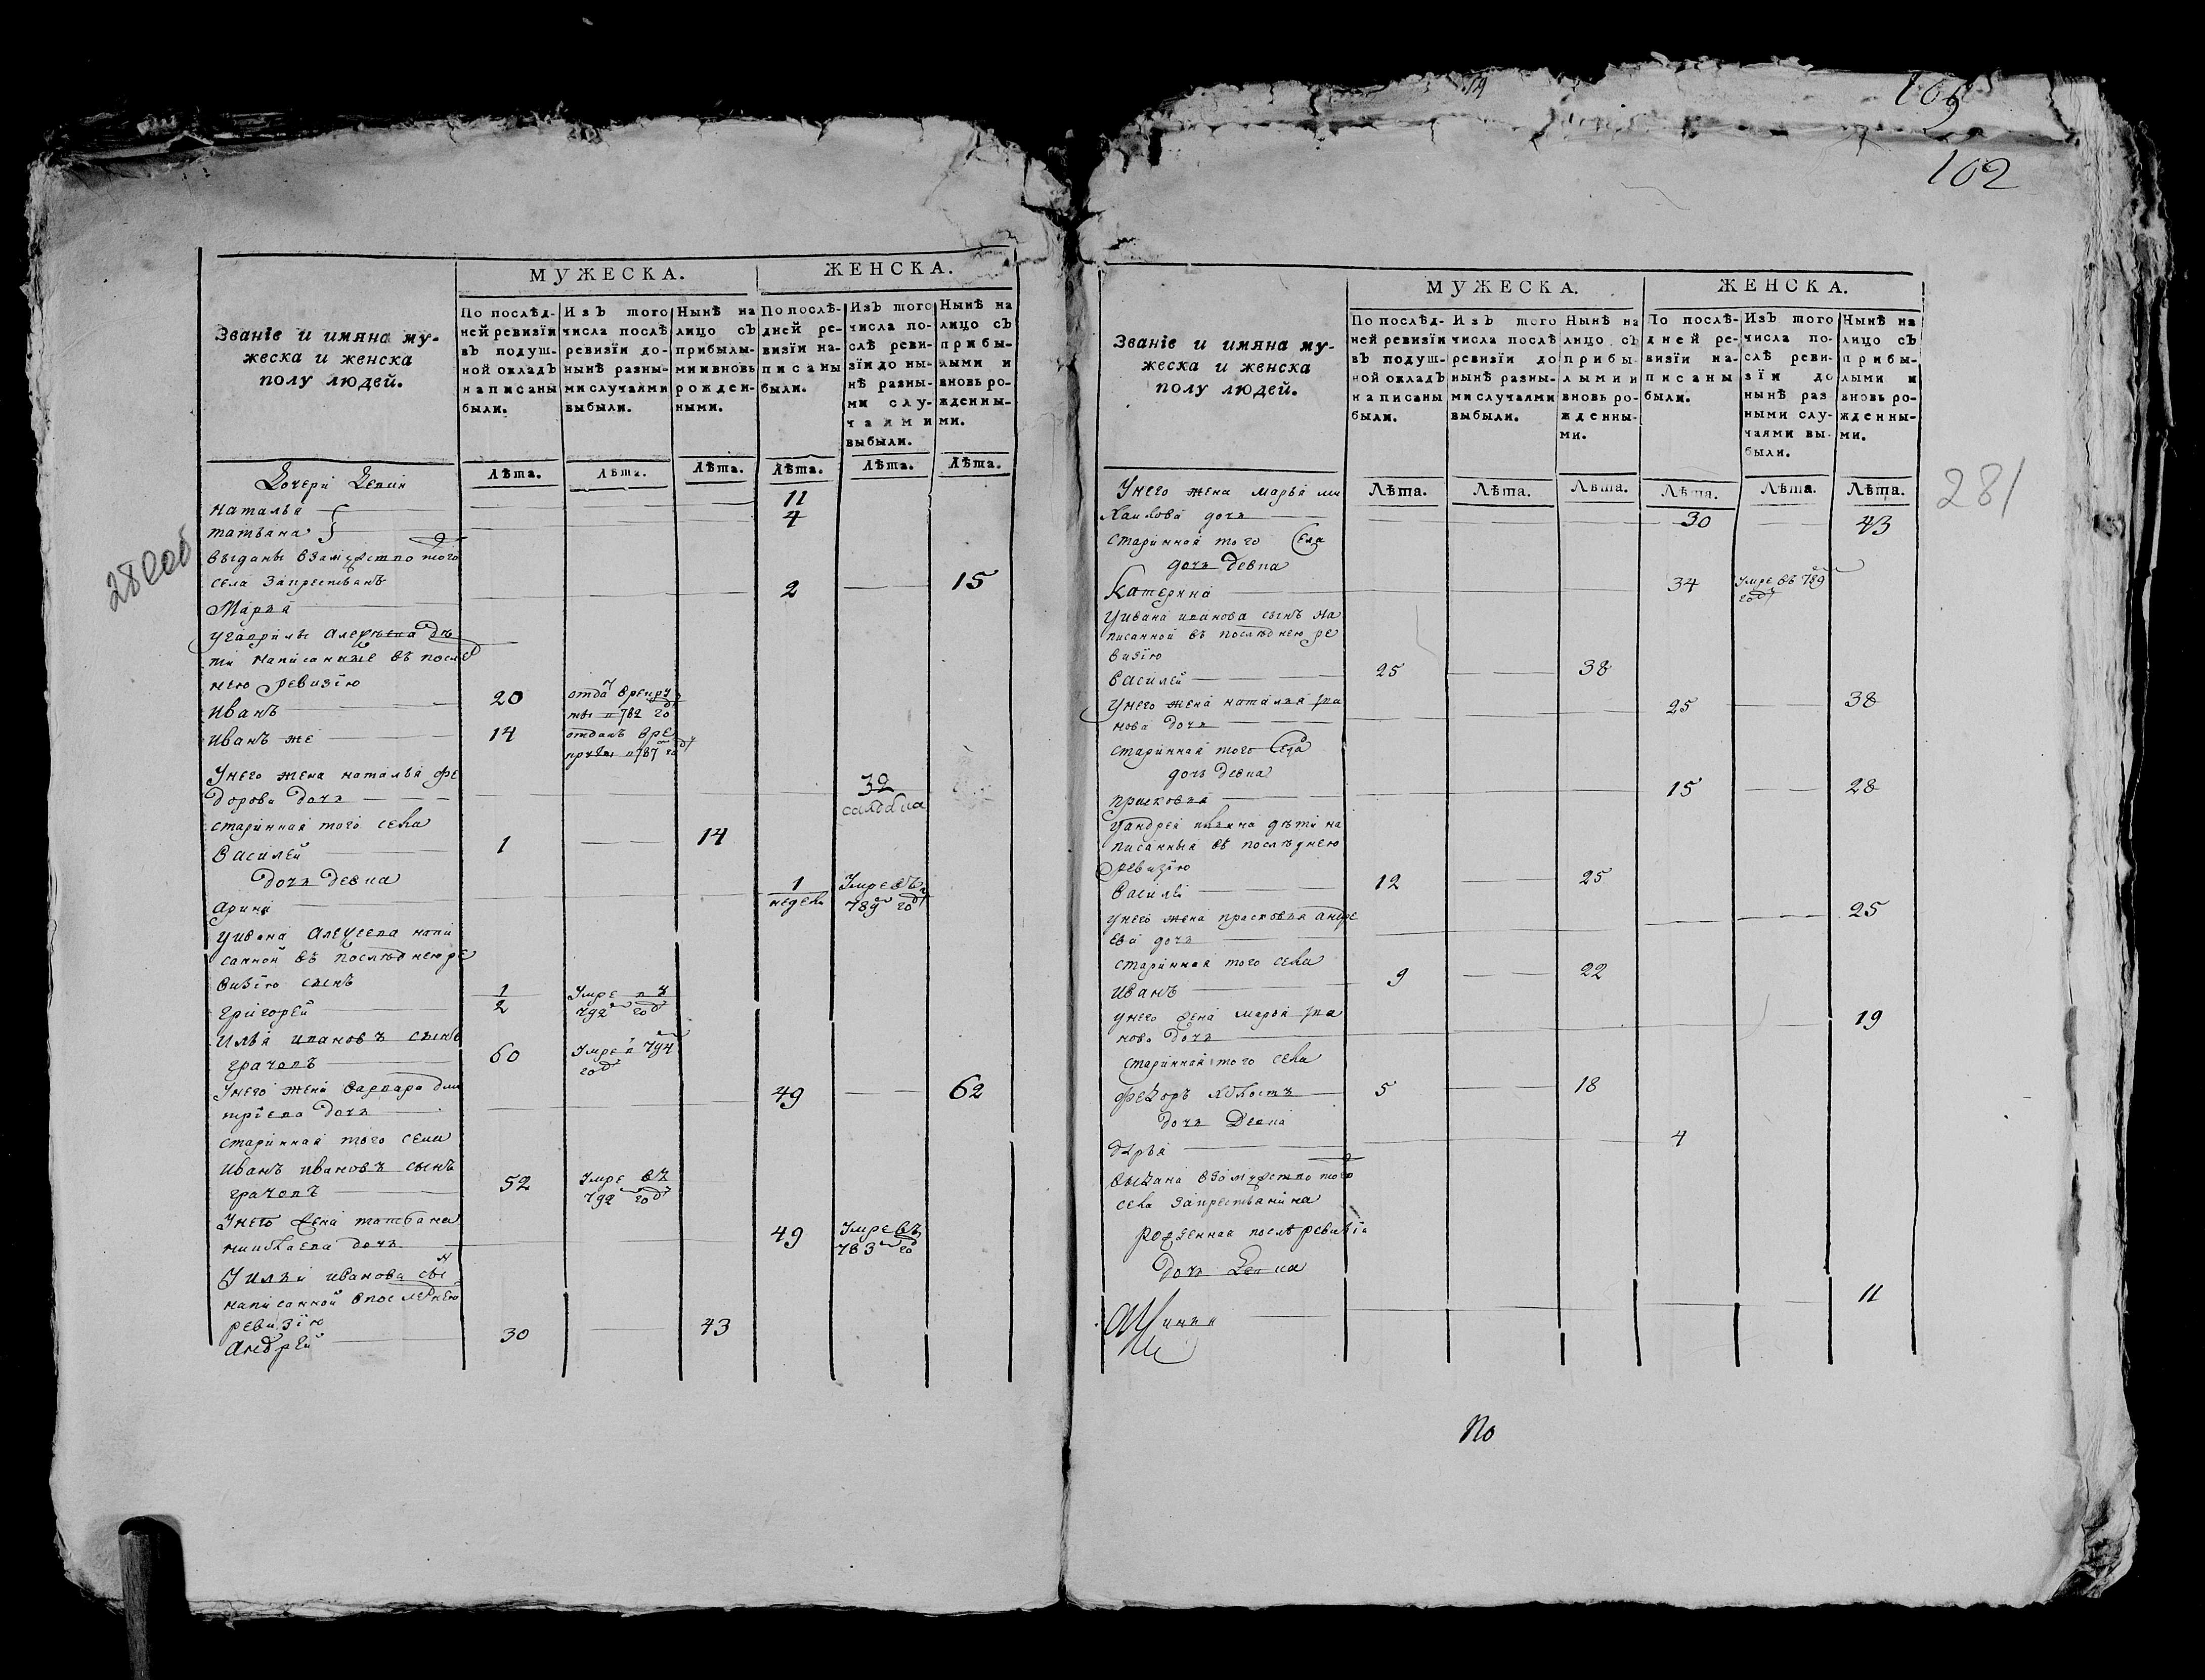 105
102
280об
281
МУЖЕСКА.
ЖЕНСКА.
Званіе и имяна му-
жеска и женска
полу людей.
По послѣд-
ней ревизіи
въ подуш-
ной окладъ
написаны
были.
Изъ того
числа послѣ
ревизіи до-
нынѣ разны-
ми случаями
выбыли.
Нынѣ на
лицо съ
прибылы-
ми и вновь
рожден-
ными.
По послѣ-
дней ре-
визіи на-
писаны
были.
Изъ того
числа по-
слѣ реви-
зіи до ны-
нѣ разны-
ми слу-
чаями
выбыли.
Нынѣ на
лицо съ
прибы-
лыми и
вновь ро-
жденны-
ми.
Лѣта. Лѣта. Лѣта. Лѣта. Лѣта. Лѣта.
Дочери Девки
Наталья 11
татьяна 4
выданы взамужство того
села Запрестьянъ
Марья 2 15
угаврилы алексѣева дѣ
ти написанные въ послѣд
нею ревизію
Иванъ 20 отда врекру
ты в 782 год
Иванъ же 14 отданъ вре
круты в 787 год
Унего жена наталья фе
дорова дочь 32
салдатка
старинная того села
Василей 1 14
дочь девка
арина 1 недели Умре въ
789 год
Уивана Алексеева напи
санной въ последнею ре
визію сынъ
григорей 1/2 Умре в
792 год
Илья ивановъ сынъ
грачовъ 60 Умре в 794
год
Унего жена варвара дми
триева дочь 49 62
старинная того села
Иванъ ивановъ сынъ
грачовъ 52 Умре въ
792 год
Унего жена татьяна
николаева дочь 49 Умре въ
783 год
Уильи иванова сынъ
написанной впоследнею
ревизію
андрей 30 43
МУЖЕСКА.
ЖЕНСКА.
Званіе и имяна му-
жеска и женска
полу людей.
По послѣд-
ней ревизіи
въ подуш-
ной окладъ
написаны
были.
Изъ того
числа послѣ
ревизіи до
нынѣ разны-
ми случаями
выбыли.
Нынѣ на
лицо съ
прибы-
лыми и
вновь ро-
жденны-
ми.
По послѣ-
дней ре-
визіи на-
писаны
были.
Изъ того
числа по-
слѣ реви-
зіи до
нынѣ раз
ными слу-
чаями вы-
были.
Нынѣ на
лицо съ
прибы-
лыми и
вновь ро-
жденны-
ми.
Лѣта. Лѣта. Лѣта. Лѣта. Лѣта. Лѣта.
Унего жена марья ми
хайлова дочь 30 43
старинной того села
дочь девка
Катерина 34 Умре въ 789
год
Уивана иванова сынъ на
писанной въ последнею ре
визію
василей 25 38
Унего жена наталья
нова дочь 25 38
старинная того села
дочь девка
прасковья 15 28
Уандрея ильина дѣти на
писанныя въ последнею
ревизію
василей 12 25
унего жена прасковья андре
ева дочь 25
старинная того села
Иванъ 9 22
унего жена марья
нова дочь 19
старинная того села
федоръ холостъ 5 18
дочь Девка
дарья 4
выдана взамужство того
села запрестьянина
рожденная послѣ ревизіи
дочь Девка
11
По